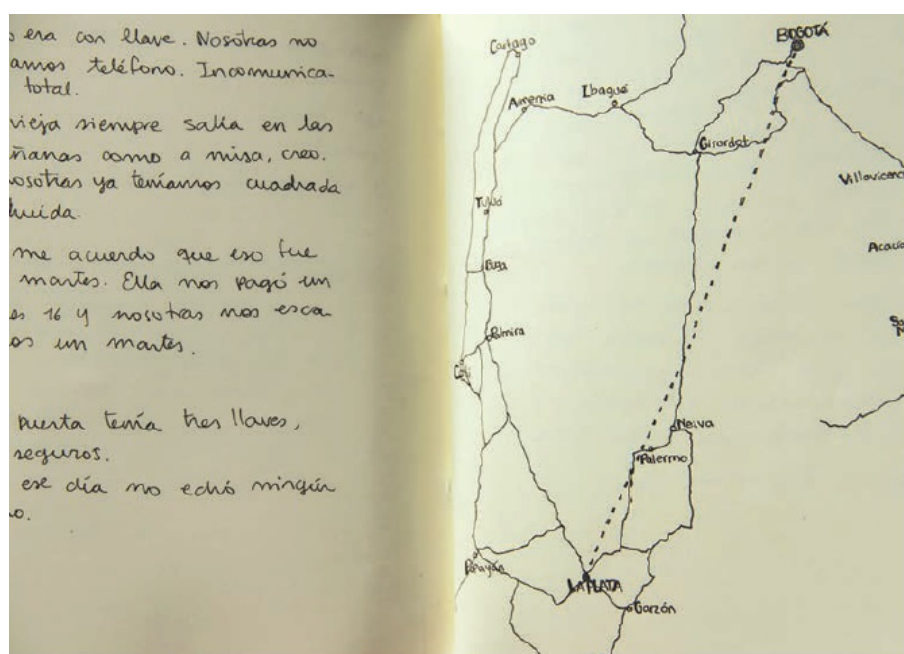 o era con llave. Nosotras no
amos teléfono. Incomunica-
total.
vieja siempre salía en las
ñanas como a misa, creo.
osotras ya teníamos cuadrada
huida.
me acuerdo que eso fue
martes. Ella nos pagó un
es 16 y nosotras nos esca-
os un martes.
puerta tenía tres llaves,
seguros.
ese día no echó ningún
o.
BOGOTÁ
Cartago
Armenia
Ibagué
Girardot
Villavicenc
Tuluá
Acacía
Buga
Palmira
Cali
Neiva
Palermo
Popayán
LA PLATA
Garzón